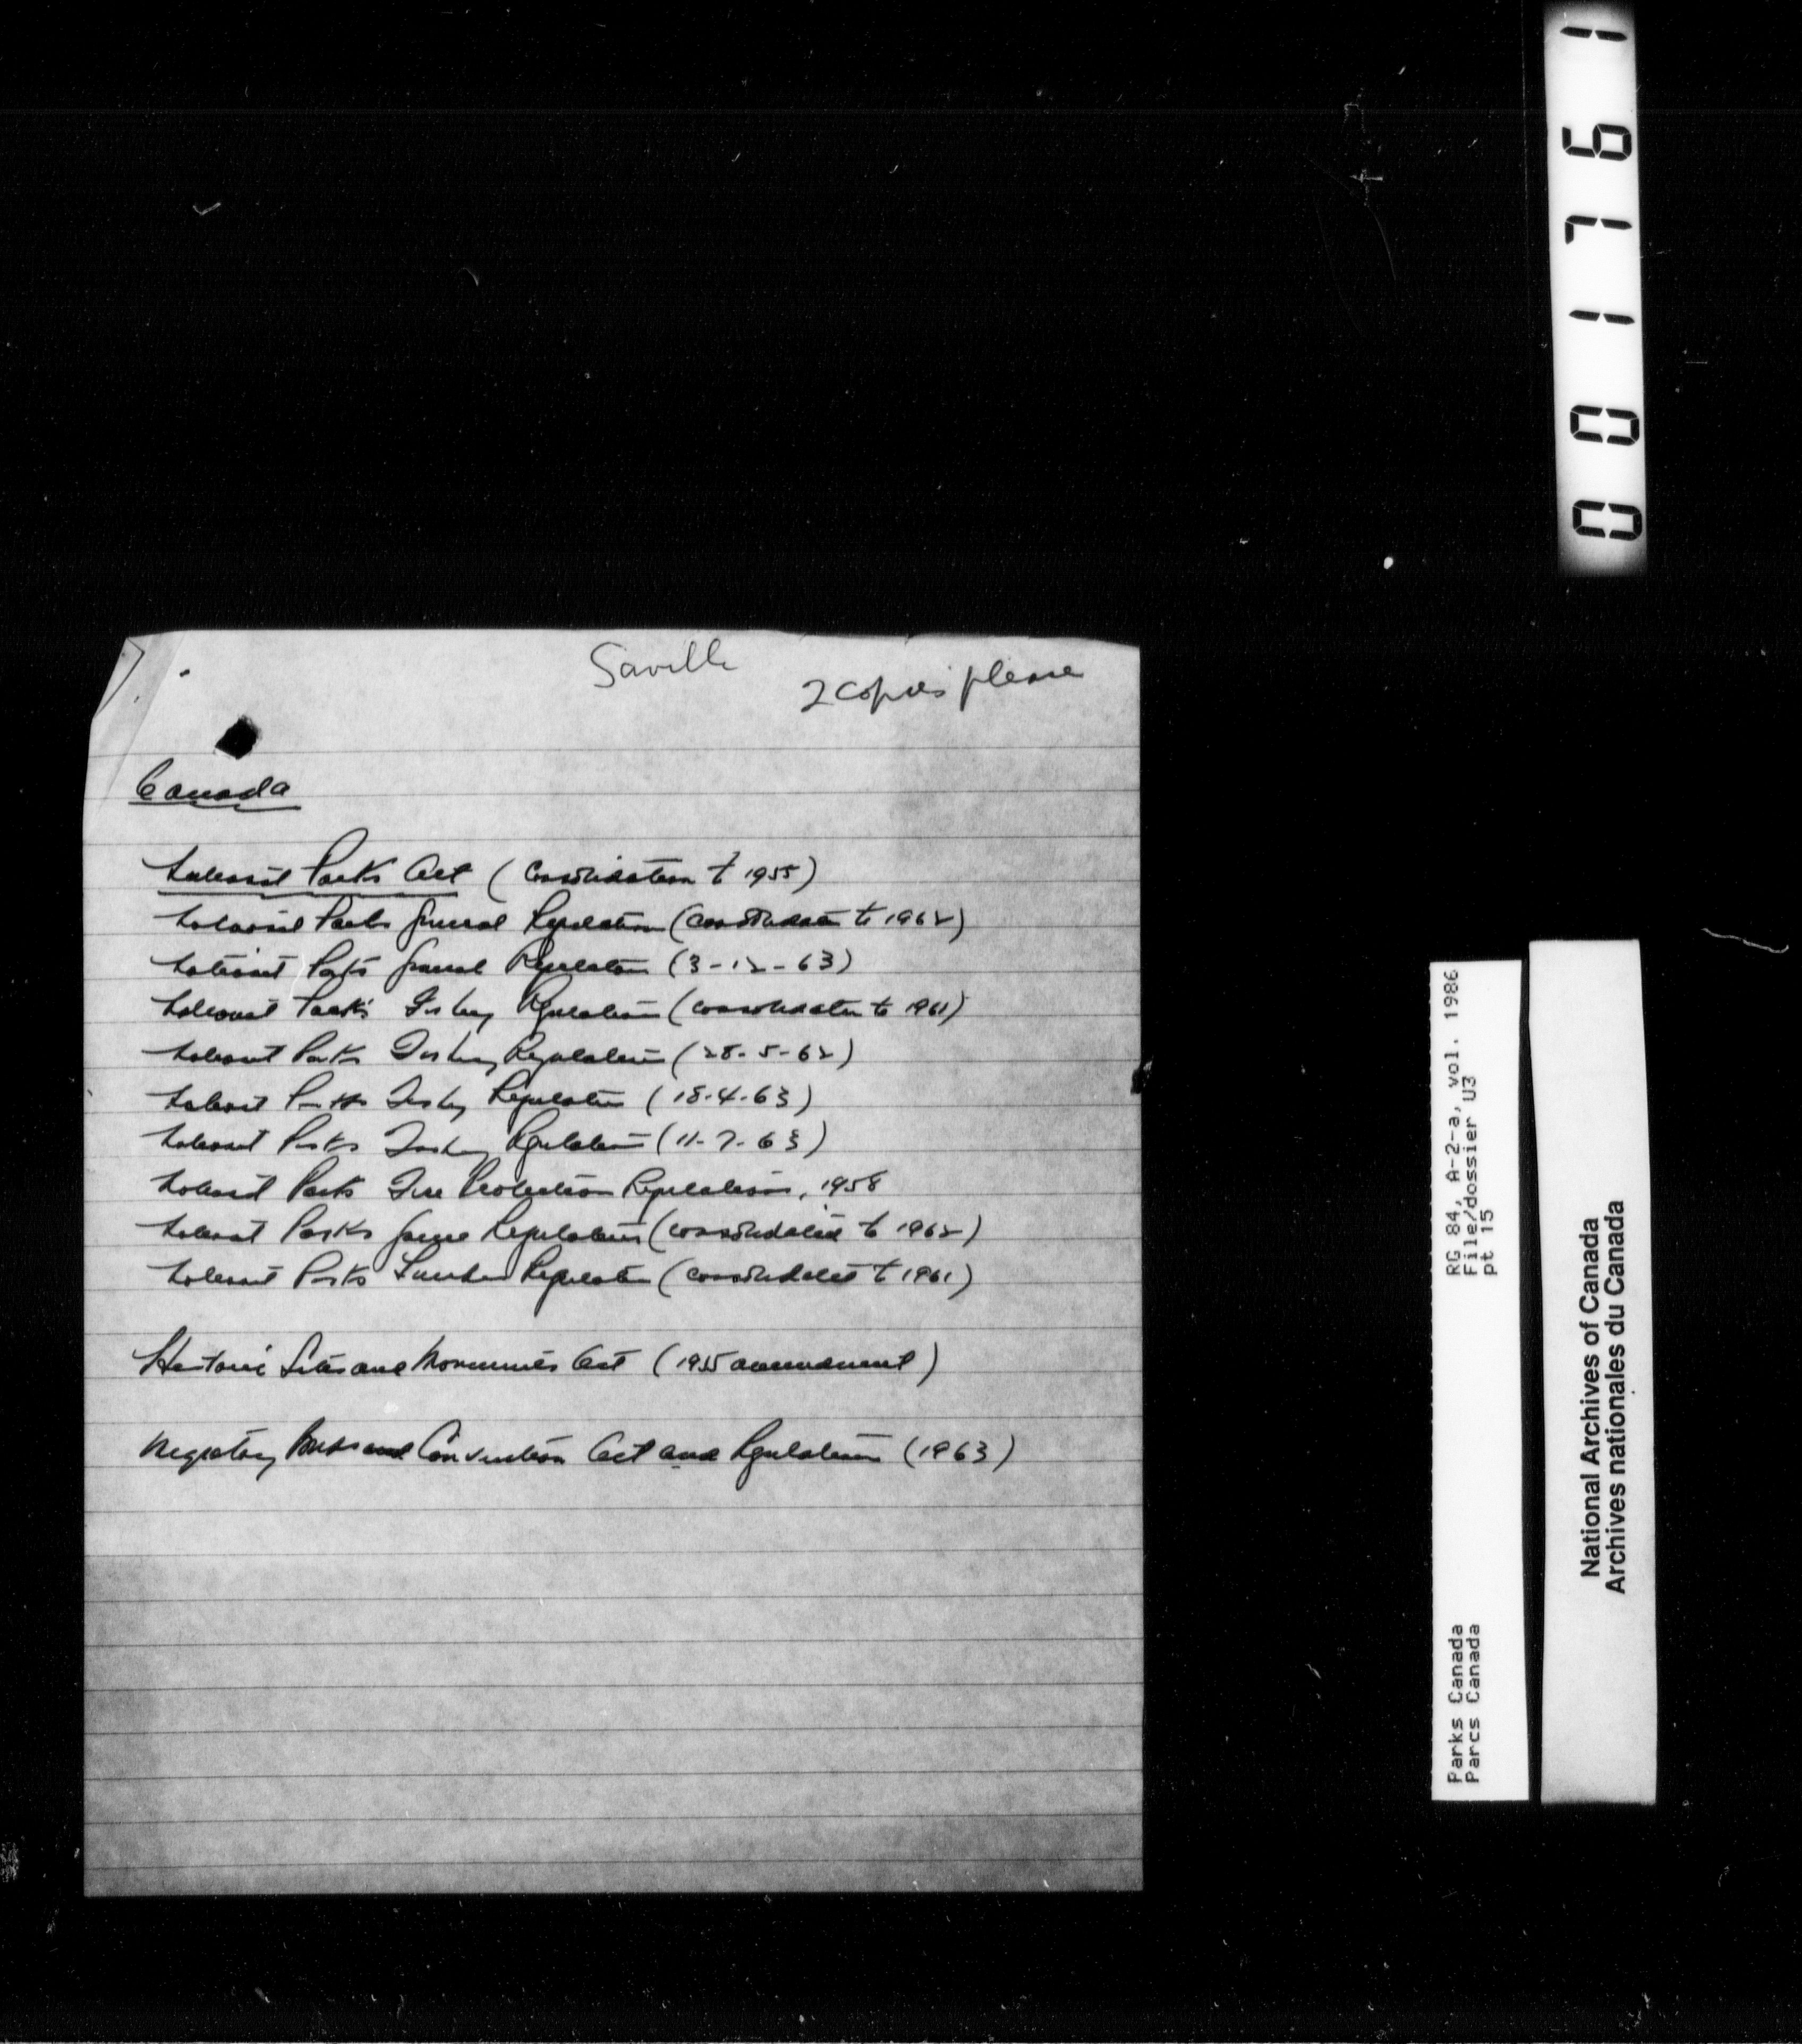 Saville
2 copies please
Canada
National Parks Act (Consolidation to 1955)
National Parks General Regulations (consolidation to 1962)
National Parks General Regulations (3-12-63)
National Parks Fishing Regulations (consolidation to 1961)
National Parks Fishing Regulations (28-5-62)
National Parks Fishing Regulations (18-4-63)
National Parks Fishing Regulations (11-7-63)
National Parks Fire Protection Regulations, 1958
National Parks Game Regulations (consolidated to 1962)
National Parks Timber Regulations (consolidated to 1961)
Historic Sites and Monuments Act (1955 amendment)
Migratory Birds Convention Act and Regulations (1963)
001761
RG 84, A-2-a, vol. 1986
File/dossier U3
pt 15
Parks Canada
Parcs Canada
National Archives of Canada
Archives nationales du Canada